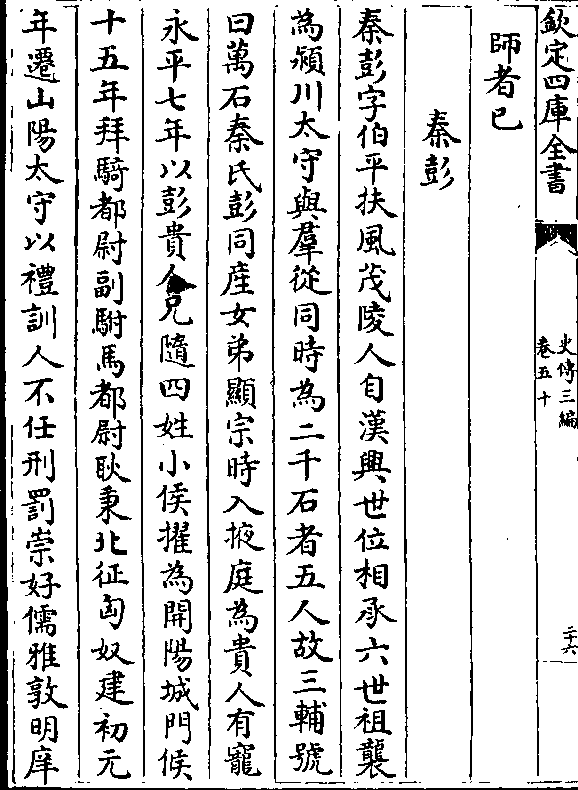 欽定四庫全書
史傳三編
卷五十
三六
師者已
秦彭
秦彭字伯平扶風茂陵人自漢興世位相承六世祖襲
為潁川太守與羣從同時為二千石者五人故三輔號
曰萬石秦氏彭同産女弟顯宗時入掖庭為貴人有寵
永平七年以彭貴人兄隨四姓小侯擢為開陽城門候
十五年拜騎都尉副駙馬都尉耿秉北征匈奴建初元
年遷山陽太守以禮訓人不任刑罰崇好儒雅敦明庠